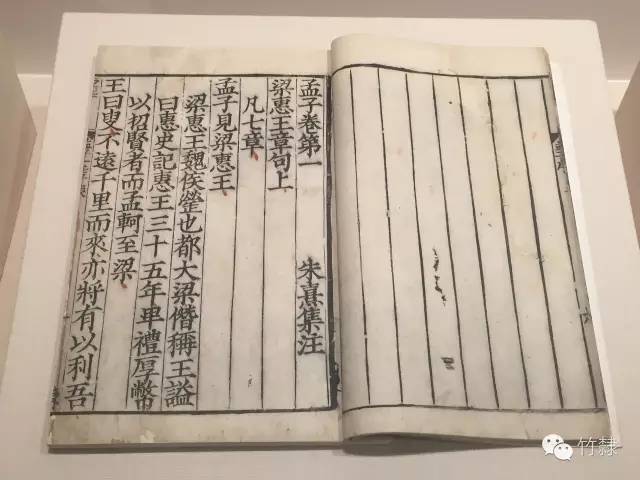 孟子卷第一 朱熹集注
梁惠王章句上
凡七章
孟子見梁惠王
梁惠王魏侯罃也都大梁僭稱王謚
曰惠史記惠王三十五年卑禮厚幣
以招賢者而孟軻至梁
王曰叟不遠千里而來亦將有以利吾
竹隸